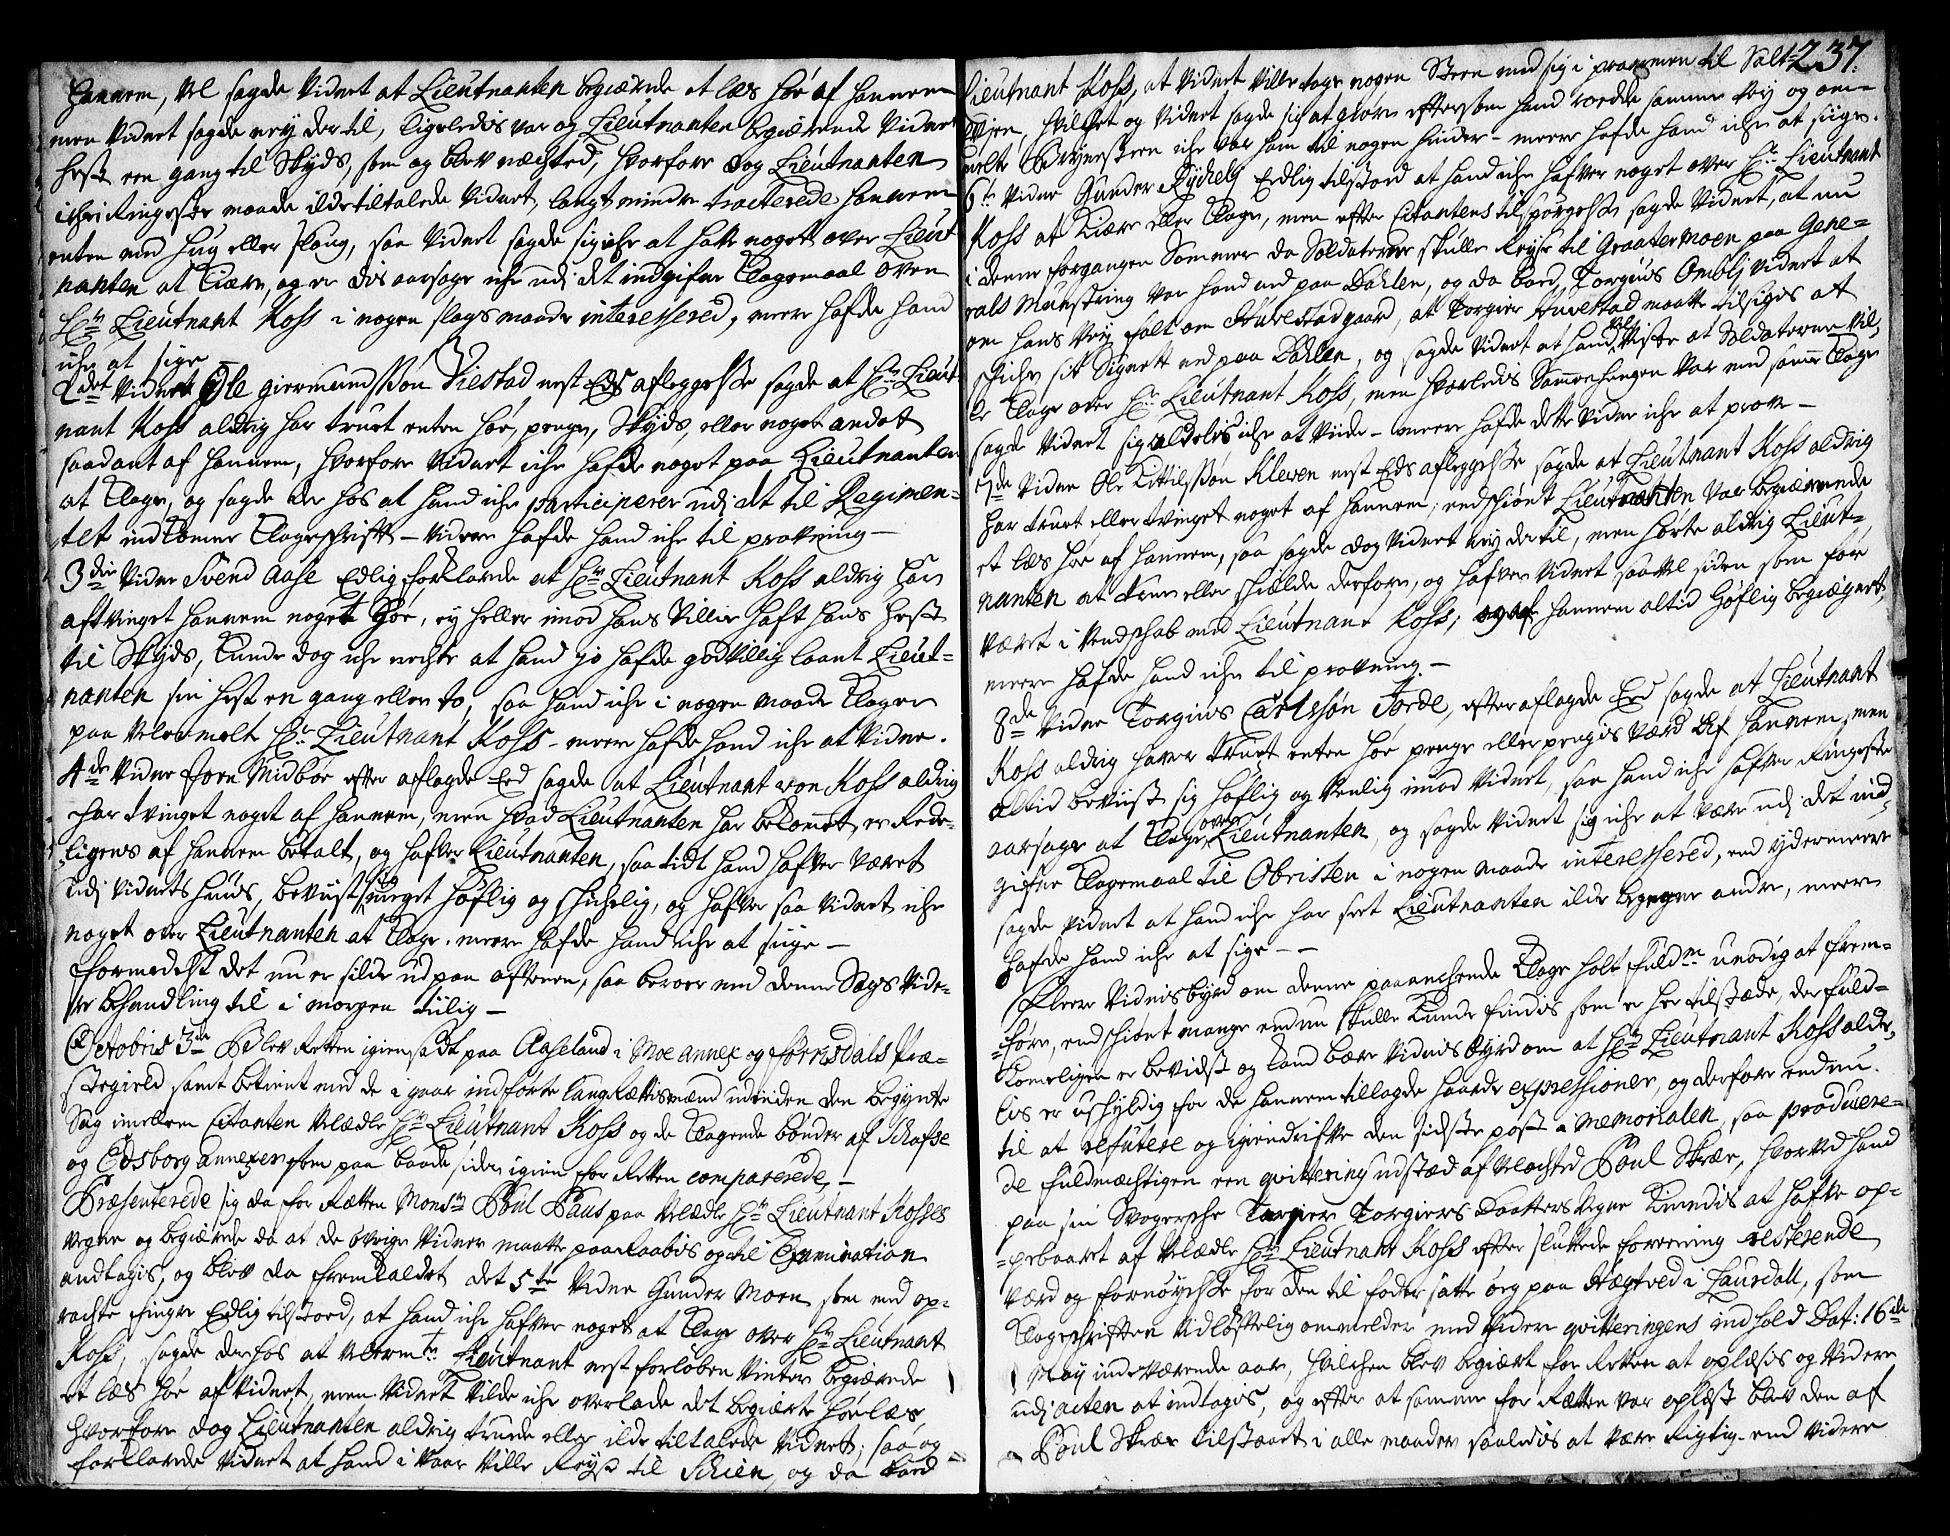 hannem, vel sagde Vidnet at Lieutnanten begiærede et læs høe af hannem
men Vidnet sagde ney der til, ligeledis var og Lieutnanten begiærende Vidnets
hest een gang til Skyds, som og blev næchted, hvorfore dog Lieutnanten
iche i Ringeste maade ilde tiltalede Vidnet, langt mindre tracterede hannem
enten med hug eller slaug, saa Vidnet sagde sig iche at hafve noget over Lieut
nanten at Kiære, og er dis aarsage iche udj det indgifne Klagemaal over
Hr Lieutnant Koss i nogen slags maade interessered, meere hafde hand
iche at sige
2det Vidnet Ole giermundssøn Viestad nest Eds afleggelse sagde at Hr Lieut
nant Koss aldrig har truet enten høe, penge, Skyds, eller noget andet
saadant af hannem, hvorfore Vidnet iche hafde noget paa Lieutnanten
at Klage, og sagde der hos at hand iche participerer udj det til Regimen-
tet indkomne Klageskrift - videre hafde hand iche til prowning -
3die Vidne Svend Aase Edlig forklarede at Hr Lieutnant Koss aldrig har
aftvinget hannem noget høe, ey heller imod hans Villie haft hans hest
til Skyds, Kunde dog iche nechte at hand jo hafde godvillig laant Lieut-
nanten sin hest en gang eller to, saa hand iche i nogen maade Klager
paa Velermelte Hr Lieutnant Koss - meere hafde hand iche at Vidne.
4de Vidne Jorn Midbøe efter aflagde Eed sagde at Lieutnant von Koss aldrig
har tvinget noget af hannem, men hvad Lieutnanten har bekommet er Rede-
ligens af hannem betalt, og hafver Lieutnanten, saa tidt hand hafver Været
udj Vidnets huus, beviist sig meget høflig og schichelig, og hafver saa Vidnet iche
noget over Lieutnanten at Klage. meere hafde hand iche at siige -
formedelst det nu er silde ud paa aftenen, saa beroer med denne Sags Vide-
re behandling til i morgen tiilig -
Octobris 3die Blev Retten igien sadt paa Aaseland i Moe annex og forrisdals Præ-
stegield samt betient med de i gaar indførte laugrættismænd udj den begynte
Sag imellem Citanten Velædle Hr Lieutnant Koss og de Klagende bønder af Schafse
og Eidsborg annexer som paa baade sider igien for Retten comparerede -
Præsenterede sig da for Rætten Monsr Poul Paus paa Velædle Hr Lieutnant Kosses
vegne og begiærede da at de øvrige Vidner maatte paaraabis og til Examination
andtagis, og blev da fremkaldet det 5te Vidne Gunder Moen som med op-
rachte fingre Edlig tilstoed, at hand iche hafver noget at Klage over Hr Lieutnant
Koss, sagde derhos at Velermte Lieutnant nest forløben Vinter begiærede
et læs høe af Vidnet, men Vidnet Vilde iche overlade det begiærte høelæs,
hvorfore dog Lieutnanten aldrig truede eller ilde tiltalede Vidnet, saa og
forklarede Vidnet at hand i Vaar Ville Reyse til Schien, og da bad
237.
Lieutnant Koss, at Vidnet Ville tage nogen Steen med sig i prammen til Salt-
, hvilchet og Vidnet sagde sig at giøre eftersom hand roedde samme Vey og om-
melte Brynesteen iche var ham til nogen hinder - meere hafde hand iche at siige.
6te Vidne Gunder Edlig tilstoed at hand iche hafver noget over Hr Lieutnant
Koss at Kiære eller Klage, men efter Citantens tilspørgelse sagde Vidnet, at nu
i denne forgangen Sommer da Soldaterne skulle Reyse til Graatermoen paa Gene-
rals Mønstring var hand ned paa Dahlen, og da bad Torgiuls Ombli Vidnet at
om hans Vey falt om Huvestad gaard, at Torgier Huvestad maatte tilsigis at
schiche sit Signett ned paa Dahlen, og sagde Vidnet at hand vel Viste at Soldaterne Vil-
le Klage over Hr Lieutnant Koss, men hvorledis Sammenhengen var med samme Klage
sagde Vidnet sig aldelis iche at Viide - meere hafde dette Vidne iche at prove -
7de Vidne Ole Kittilssøn Kleven nest Eds afleggelse sagde at Lieutnant Koss aldrig
har truet eller tvinget noget af hannem, endschiønt Lieutnanten Var begiærende
et læs høe af hannem, saa sagde dog Vidnet ney der til, men hørte aldrig Lieut-
nanten at true eller schielde derfore, og hafver Vidnet saavel siden som før
været i Venschab med Lieutnant Koss, og af hannem altid høflig begiægnet,
meere hafde hand iche til prowning -
8de Vidne Torgiuls Carlssøn Jorde, efter aflagde Eed sagde at Lieutnant
Koss aldrig haver truet enten høe penge eller pengis Værd af hannem, men
altid beviist sig høflig og Venlig imod Vidnet, saa hand iche hafver Ringeste
aarsage at Klage over Lieutnanten, og sagde Vidnet sig iche at være udj det ind-
gifne Klagemaal til Obristen i nogen maade interessered, end ydermeere
sagde Vidnet at hand iche har seet Lieutnanten ilde begegne andre, meere
hafde hand iche at sige - -
Fleere Vidnisbyrd om denne paaanchende Klage holt fuldm unødig at frem-
føre, endschiønt mange endnu skulle Kunde findis som er her tilstæde, der fuld-
komeligen er bevidst og Kand bære Vidnisbyrd om at Hr Lieutnant Koss alde-
lis er uschyldig for de hannem tillagde haarde expressioner, og derfore endnu
til at refutere og igiendrifve den sidste post i Memorialen, saa producere-
de fuldmægtigen een qvittering udstæd af Velachted Poul Skræe, hvorved hand
paa sin Svogersche Torgier Torgiers daatters Vegne Kiendis at hafve op-
pebaaret af Velædle Hr Lieutnant Koss efter sluttede foreening resterende
værd og fornøyelse for den til foder satte øeg paa Hegtved i Laurdall, som
Klageskriften Vidløftelig ommelder med videre qvitteringens indhold Dat: 16de
May indeværende aar, hvilchen blev begiært for Retten at oplæsis og Videre
udj acten at indtagis, og efter at samme for Rætten var oplæst blev den af
Poul Skræe tilstaaet i alle maader saaledis at være Rigtig - end videre